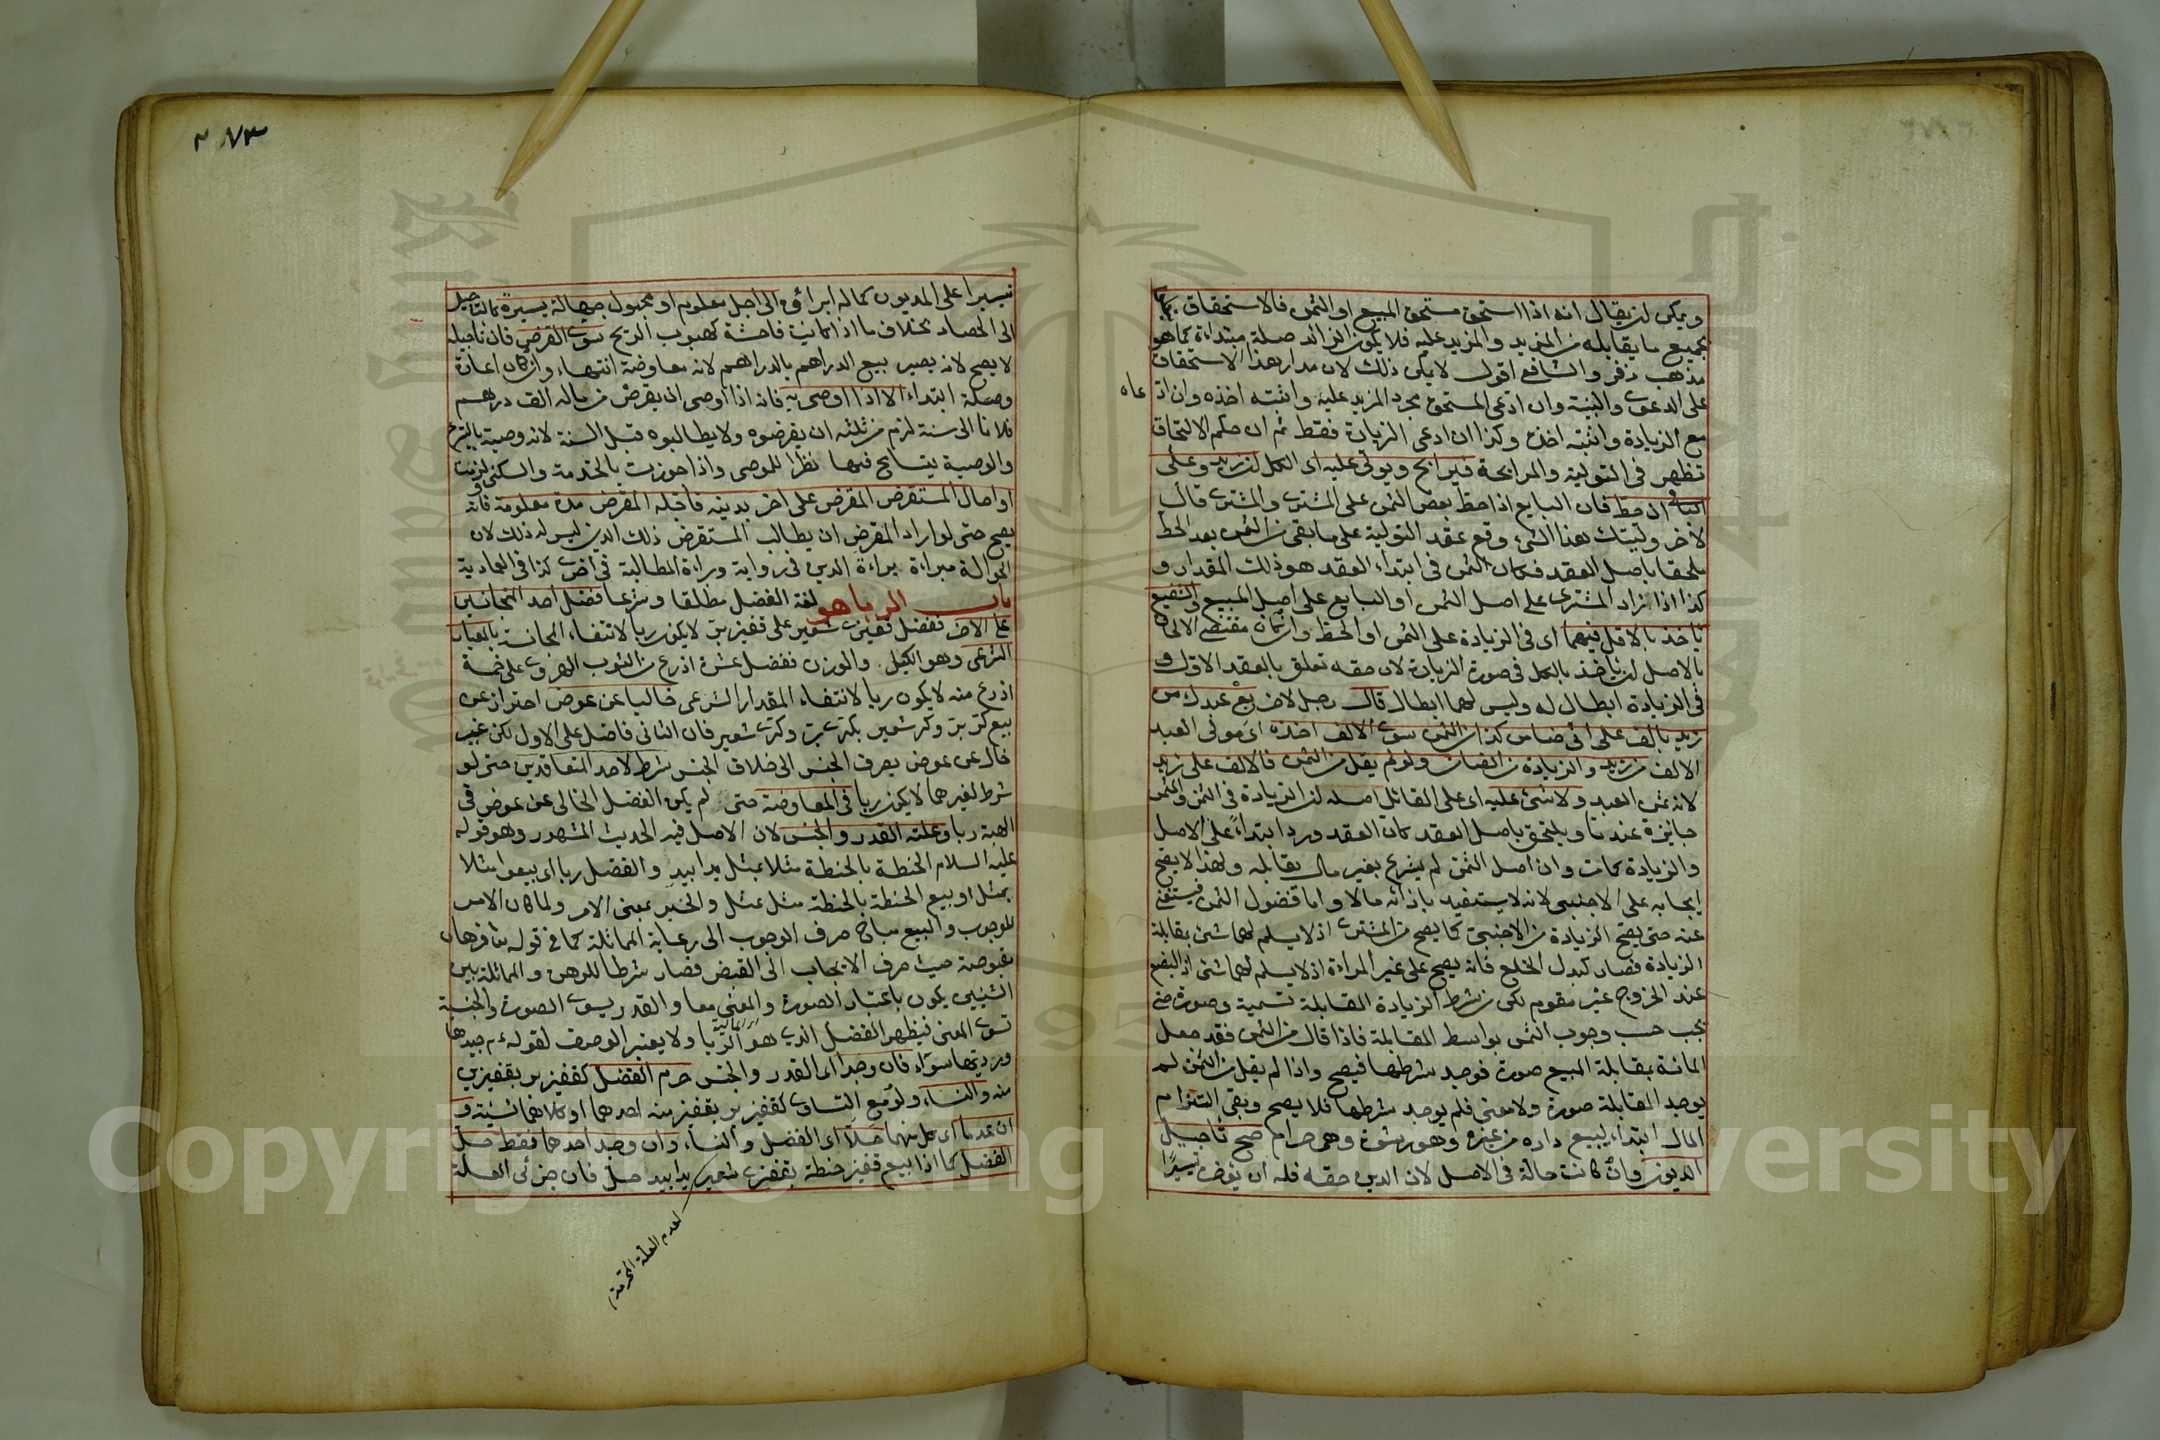 ويمكن ان يقال انه اذا استحق مستحق المبيع او الثمن فالاستحقاق
بجميع ما يقابله من المزيد والمزيد عليه فلا يكون الزائد صلة مبتداة كما هو
مذهب زفر والشافعي اقول لا يمكن ذلك لان مدار هذا الاستحقاق
على الدعوى والبينة وان ادعى المستحق مجرد المزيد عليه واثبته اخذه وان ادعاه
مع الزيادة واثبته اخذه وكذا ان ادعى الزيادة فقط ثم ان حكم الالتحاق
تظهر في التولية والمرابحة فيرابح ويولي عليه اى الكل ان زيد وعلى
الباقي ان حط فان البايع اذا حط بعض الثمن على المشتري والمشتري قال
لآخر وليتك هذا الشئ وقع عقد التولية على ما بقى من الثمن بعد الحط
ملحقا باصل العقد فكان الثمن في ابتداء العقد هو ذلك المقدار و
كذا اذا زاد المشتري على اصل الثمن او البايع على اصل المبيع والشفيع
ياخذ بالاقل فيهما اى في الزيادة على الثمن او الحط وان كان مقتضى الالحاق
بالاصل ان ياخذ بالكل في صورة الزيادة لان حقه تعلق بالعقد الاول و
في الزيادة ابطال له وليس لهما ابطال قال رجل لاخر بع عبدك من
زيد بالف على انى ضامن كذا من الثمن سوى الالف اخذه اى مولى العبد
الالف من زيد والزيادة من الضامن ولو لم يقل من الثمن فالالف على زيد
لانه ثمن العبد ولا شئ عليه اى على القائل اصله ان الزيادة في الثمن والمثمن
جائزة عندنا ويلتحق باصل العقد كان العقد ورد ابتداءً على الاصل
والزيادة كانت وان اصل الثمن لم يشرع بغير مال يقابله ولهذا لا يصح
ايجابه على الاجنبي لانه لا يستفيد بازائه مالا واما فضول الثمن فيستغنى
عنه حتى يصح الزيادة من الاجنبي كما يصح من المشترى اذ لا يسلم لهما شئ بمقابلة
الزيادة فصار كبدل الخلع فانه يصح على غير المراءة اذ لا يسلم لهما شئ اذ البضع
عند الخروج غير مقوم لكن من شرط الزيادة المقابلة تسمية وصورة حتى
تجب حسب وجوب الثمن بواسط المقابلة فاذا قال من الثمن فقد جعل
المائة بمقابلة المبيع صورة فوجد شرطها فيصح واذا لم يقل من الثمن لم
يوجد المقابلة صورة ولا معنى فلم يوجد شرطها فلا يصح وبقى التزام
المال ابتداء لبيع داره من غيره وهو رشوة وهى حرام صح تاجيل
الديون وان كانت حالّة في الاصل لان الدين حقه فله ان يؤخر تيسيرًا
٢٧٣
تيسيرا على المديون كماله ابراؤه الى اجل معلوم او مجهول جهالة يسيرة كالتاجيل
الى الحصاد بخلاف ما اذا كانت فاحشة كهبوب الريح سوى القرض فان تاجيله
لا يصح لانه يصير بيع الدراهم بالدراهم لانه معاوضة انتهاء وان كان اعارة
وصلة ابتداء الا اذا اوصى به فانه اذا اوصى ان يقرض من ماله الف درهم
فلانا الى سنة لزم من ثلثه ان يقرضوه ولا يطالبوه قبل السنة لانه وصية بالتبرع
والوصية يتسامح فيها نظرا للموصى واذا جوزت بالخدمة والسكنى لزمت
او احال المستقرض المقرض على اخر بدينه فاجله المقرض مدة معلومة فانه
يصح حتى لو اراد المقرض ان يطالب المستقرض ذلك الدين ليس له ذلك لان
الحوالة مبراءة براءة الدين في رواية وبراءة المطالبة في اخرى كذا في العمادية
باب الربا هو لغة الفضل مطلقا وشرعا فضل احد المتجانسين
على الاخر ففضل قفيزى شعير على قفيز بر لا يكون ربا لانتفاء المجانسة بالمعيار
الشرعى وهو الكيل والوزن ففضل عشرة اذرع من الثوب الهروى على خمسة
اذرع منه لا يكون ربا لانتفاء المقدار الشرعى خاليا عن عوض احتراز عن
بيع كر بر وكر شعير بكرى بر وكرى شعير فان الثانى فاضل على الاول لكن غير
خال عن عوض بصرف الجنس الى خلاف الجنس شرط لاحد المتعاقدين حتى لو
شرط لغيرهما لا يكون ربا في المعاوضة حتى لم يكن الفضل الخالى عن عوض في
الهبة ربا وعلته القدر والجنس لان الاصل فيه الحديث المشهور وهو قوله
عليه السلام الحنطة بالحنطة مثلا بمثل يدا بيد والفضل ربا اى بيعوا مثلا
بمثل او بيع الحنطة بالحنطة مثل بمثل والخبر بمعنى الامر ولما كان الامر
للوجوب والبيع مباح صرف الوجوب الى رعاية المماثلة كما في قوله تعا فرهان
مقبوضة حيث صرف الايجاب الى القبض فصار شرطا للرهن والمماثلة بين
الشيئين يكون باعتبار الصورة والمعنى معا والقدر يسوى الصورة والجنسية
تسوى المعنى فيظهر الفضل الذى هو الربا ولا يعتبر الوصف لقوله ءم جيدها
ورديها سواء فان وجدا اى القدر والجنس حرم الفضل كقفيز بر بقفيزين
منه والنساء ولو مع التساوى كقفيز بر بقفيز منه احدهما او كلاهما نسيئة و
ان عدما اى كل منهما حلّا اى الفضل والنساء وان وجد احدهما فقط حل
الفضل كما اذا بيع قفيز حنطة بقفيزى شعير يدا بيد حل فان جزئى العلة
لعدم العلة المحرمة